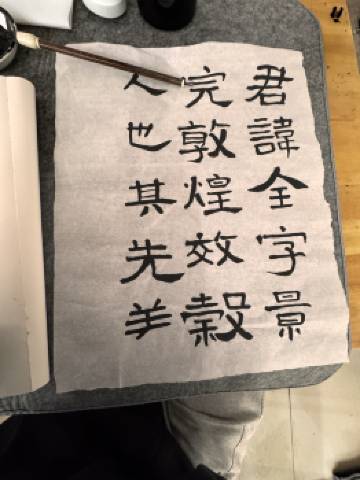 君諱全字景
完敦煌效穀
人也其先